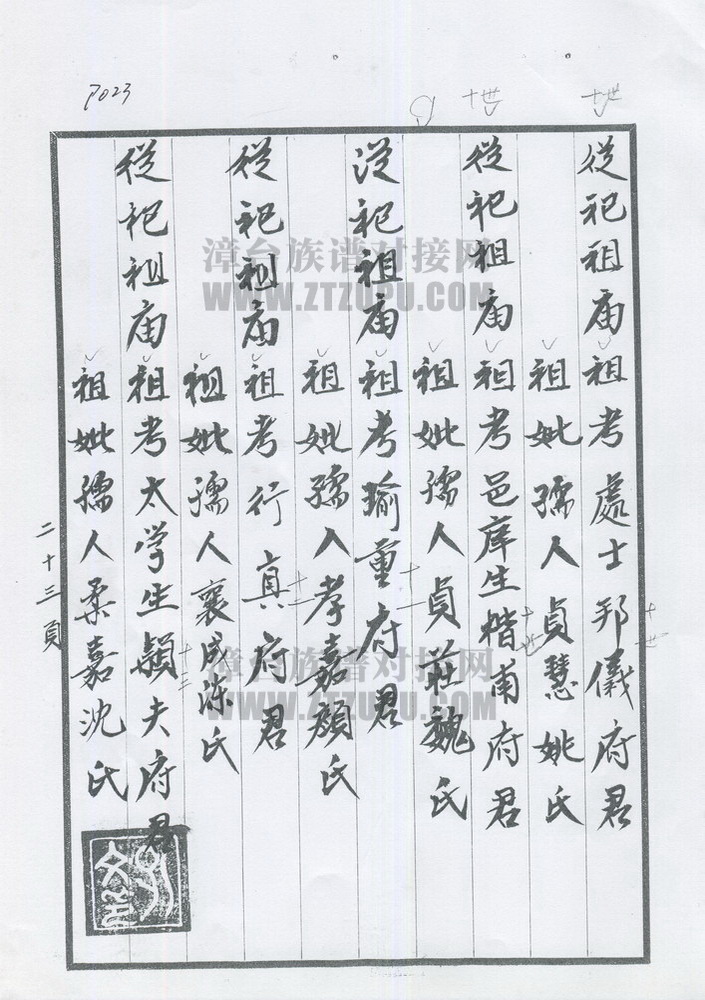 P023
十世
十世
從祀祖庙祖考處士邦儀府君
十世
祖妣孺人貞慧姚氏
從祀祖庙祖考邑庠生楷甫府君
十世
祖妣孺人貞莊魏氏
從祀祖庙祖考瑜董府君
十一
祖妣孺人孝嘉顏氏
從祀祖庙祖考行真府君
十二
祖妣孺人襄成陈氏
從祀祖庙祖考太学生颖夫府君
十三
祖妣孺人柔嘉沈氏
二十三頁
漳台族谱对接网
WWW.ZTZUPU.COM
漳台族谱对接网
WWW.ZTZUPU.COM